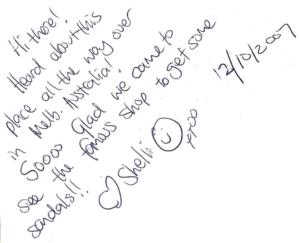 Hi there!
Heard about this
place all the way over
in Melb. Astralia!
Soooo Glad we came to
see the famous shop to get some
sandals!!
Shelli
xoo
12/10/2007